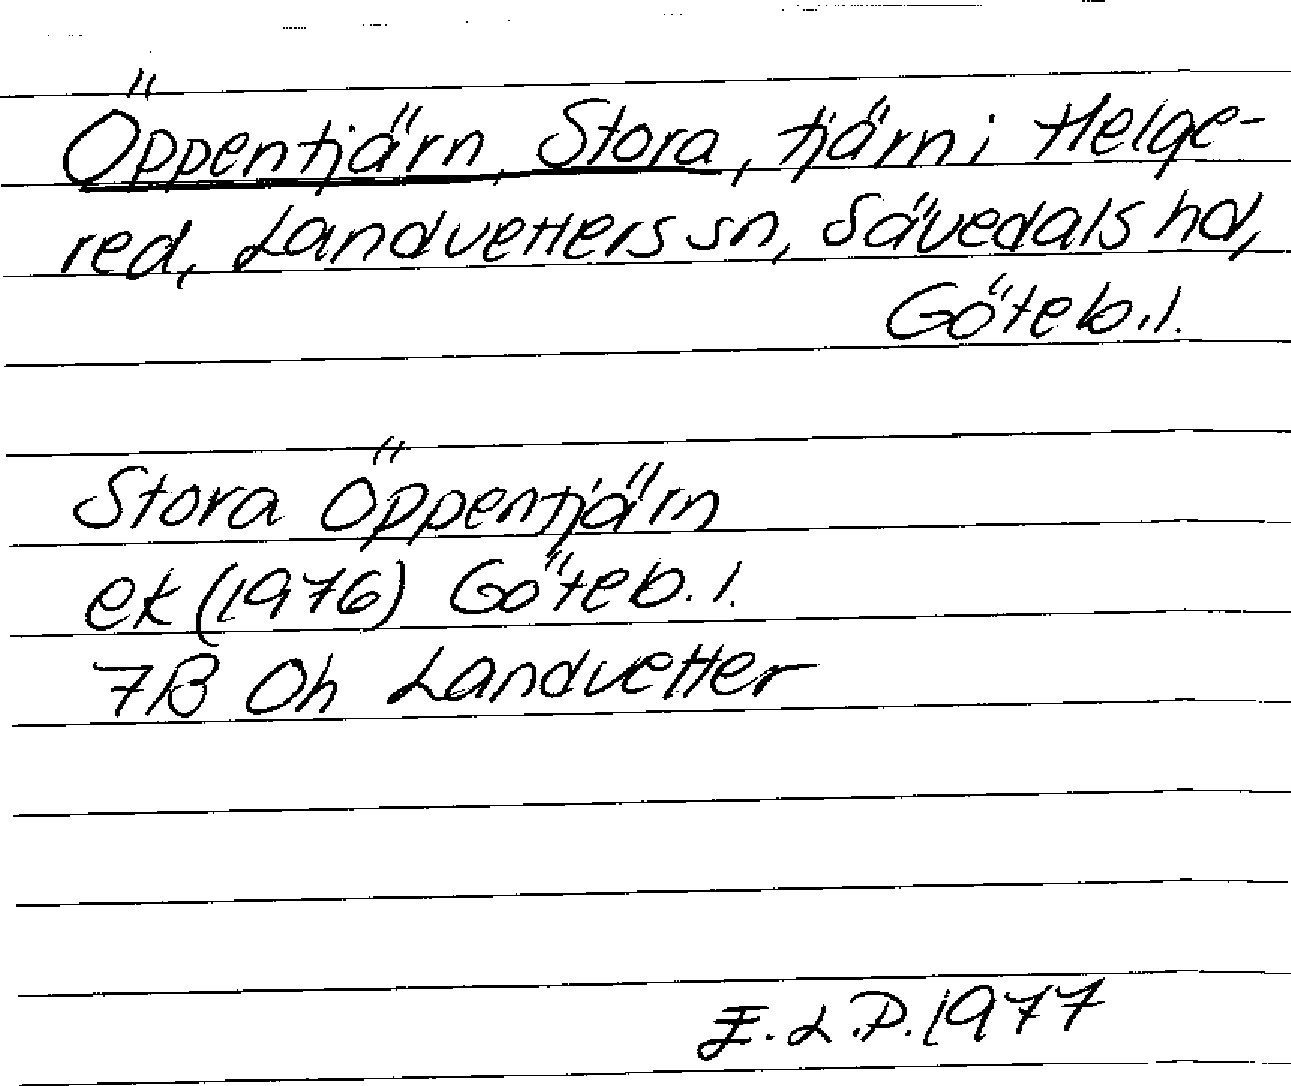 Öppentjärn, Stora, tjärn i Helge-
red, Landvetters sn, Sävedals hd,
Göteb.l.
Stora Öppentjärn
ek (1976) Göteb.l.
7B 0h Landvetter
E.L.P. 1977